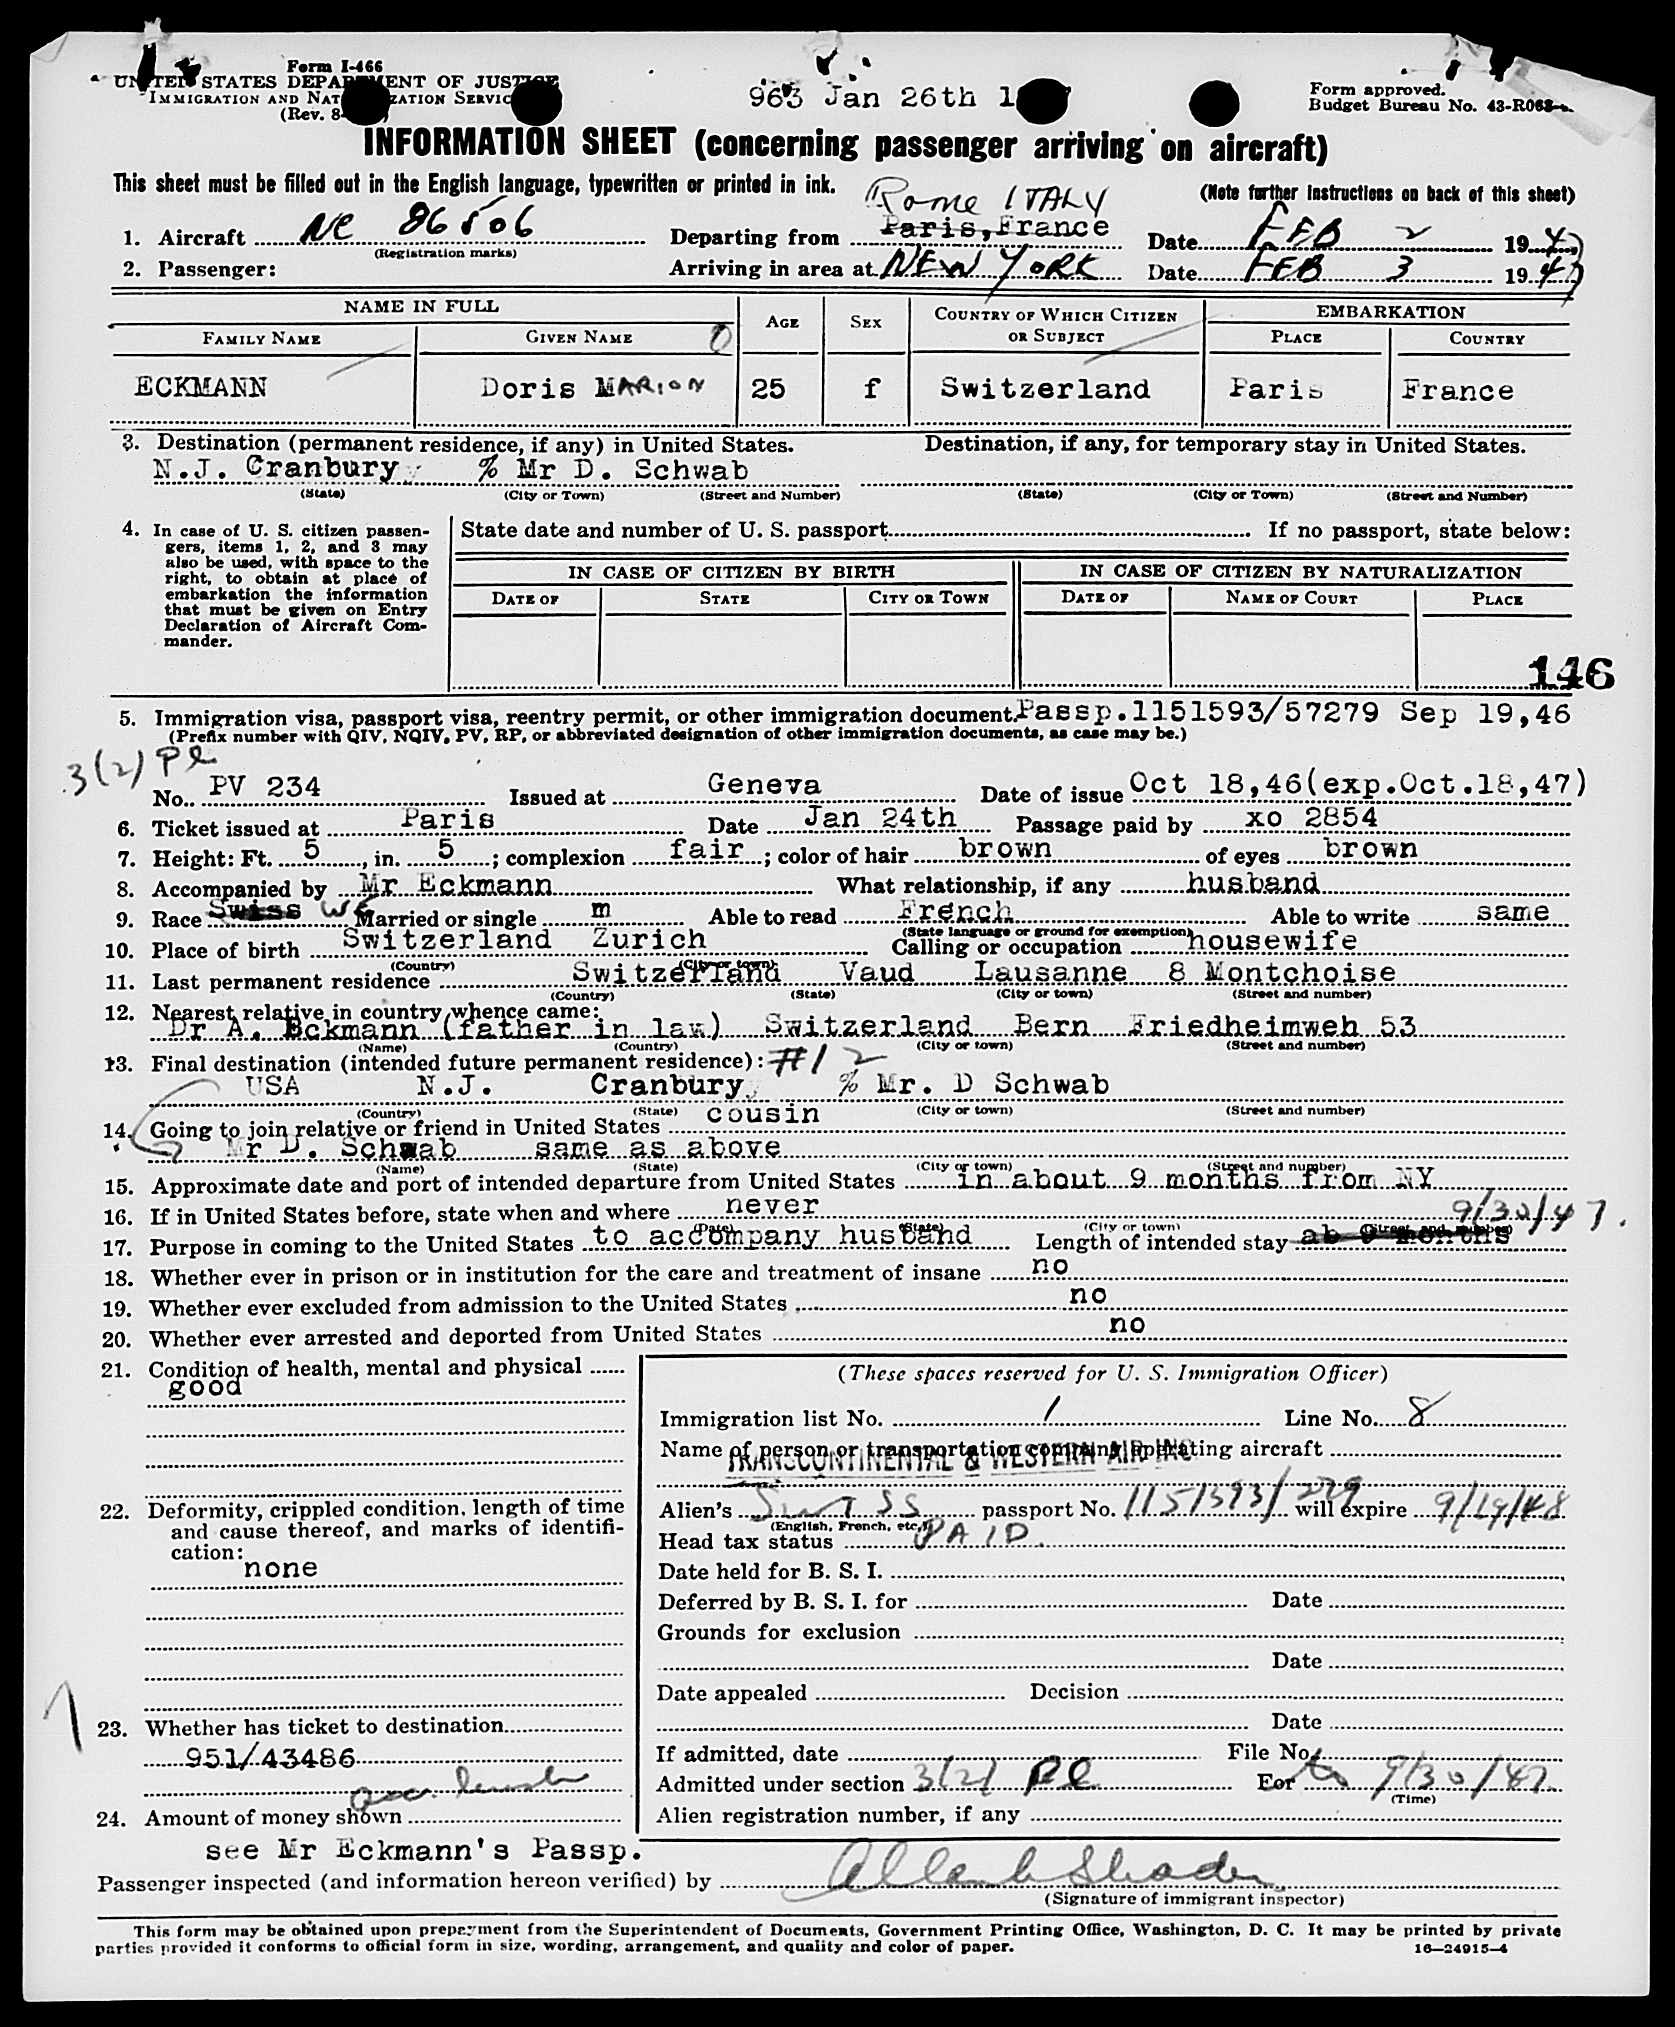 Form I-466
UNITED STATES DEPARTMENT OF JUSTICE
IMMIGRATION AND NATURALIZATION SERVICE
(Rev. 8-
963 Jan 26th 1
Form approved.
Budget Bureau No. 43-R063
INFORMATION SHEET (concerning passenger arriving on aircraft)
This sheet must be filled out in the English language, typewritten or printed in ink.
(Note further instructions on back of this sheet)
Rome ITALY
1. Aircraft NC 86506 Departing from Paris, France Date FEB 2 1947
(Registration marks)
2. Passenger: Arriving in area at NEW YORK Date FEB 3 1947
NAME IN FULL AGE SEX COUNTRY OF WHICH CITIZEN OR SUBJECT EMBARKATION
FAMILY NAME GIVEN NAME PLACE COUNTRY
ECKMANN Doris MARION 25 f Switzerland Paris France
3. Destination (permanent residence, if any) in United States. Destination, if any, for temporary stay in United States.
N.J. Cranbury % Mr D. Schwab
(State) (City or Town) (Street and Number) (State) (City or Town) (Street and Number)
4. In case of U. S. citizen passen-
gers, items 1, 2, and 3 may
also be used, with space to the
right, to obtain at place of
embarkation the information
that must be given on Entry
Declaration of Aircraft Com-
mander.
State date and number of U. S. passport If no passport, state below:
IN CASE OF CITIZEN BY BIRTH IN CASE OF CITIZEN BY NATURALIZATION
DATE OF STATE CITY OR TOWN DATE OF NAME OF COURT PLACE
146
5. Immigration visa, passport visa, reentry permit, or other immigration document. Passp.1151593/57279 Sep 19,46
(Prefix number with QIV, NQIV, PV, RP, or abbreviated designation of other immigration documents, as case may be.)
3(2) Pl
No. PV 234 Issued at Geneva Date of issue Oct 18,46(exp.Oct.18,47)
6. Ticket issued at Paris Date Jan 24th Passage paid by xo 2854
7. Height: Ft. 5, in. 5; complexion fair; color of hair brown of eyes brown
8. Accompanied by Mr Eckmann What relationship, if any husband
9. Race Swiss Married or single m Able to read French Able to write same
(State language or ground for exemption)
10. Place of birth Switzerland Zurich Calling or occupation housewife
(Country) (City or town)
11. Last permanent residence Switzerland Vaud Lausanne 8 Montchoise
(Country) (State) (City or town) (Street and number)
12. Nearest relative in country whence came:
Dr A. Eckmann (father in law) Switzerland Bern Friedheimweh 53
(Name) (Country) (City or town) (Street and number)
13. Final destination (intended future permanent residence): #12
USA N.J. Cranbury, % Mr. D Schwab
(Country) (State) (City or town) (Street and number)
14. Going to join relative or friend in United States cousin
Mr D. Schwab same as above
(Name) (State) (City or town) (Street and number)
15. Approximate date and port of intended departure from United States in about 9 months from NY
16. If in United States before, state when and where never
(Date) (State) (City or town) (Street and number)
9/30/47.
17. Purpose in coming to the United States to accompany husband Length of intended stay ab 9 months
18. Whether ever in prison or in institution for the care and treatment of insane no
19. Whether ever excluded from admission to the United States no
20. Whether ever arrested and deported from United States no
21. Condition of health, mental and physical
good
22. Deformity, crippled condition, length of time
and cause thereof, and marks of identifi-
cation:
none
23. Whether has ticket to destination
951/43486
24. Amount of money shown
see Mr Eckmann's Passp.
(These spaces reserved for U. S. Immigration Officer)
Immigration list No. 1 Line No. 8
Name of person or transportation company operating aircraft
TRANSCONTINENTAL & WESTERN AIR INC
Alien's Swiss passport No. 1151593/279 will expire 9/19/48
(English, French, etc.)
Head tax status PAID.
Date held for B. S. I.
Deferred by B. S. I. for Date
Grounds for exclusion
Date
Date appealed Decision
Date
If admitted, date File No.
Admitted under section 3(2) Pl For to 9/30/47
(Time)
Alien registration number, if any
Passenger inspected (and information hereon verified) by
(Signature of immigrant inspector)
This form may be obtained upon prepayment from the Superintendent of Documents, Government Printing Office, Washington, D. C. It may be printed by private
parties provided it conforms to official form in size, wording, arrangement, and quality and color of paper.
16—24915-4